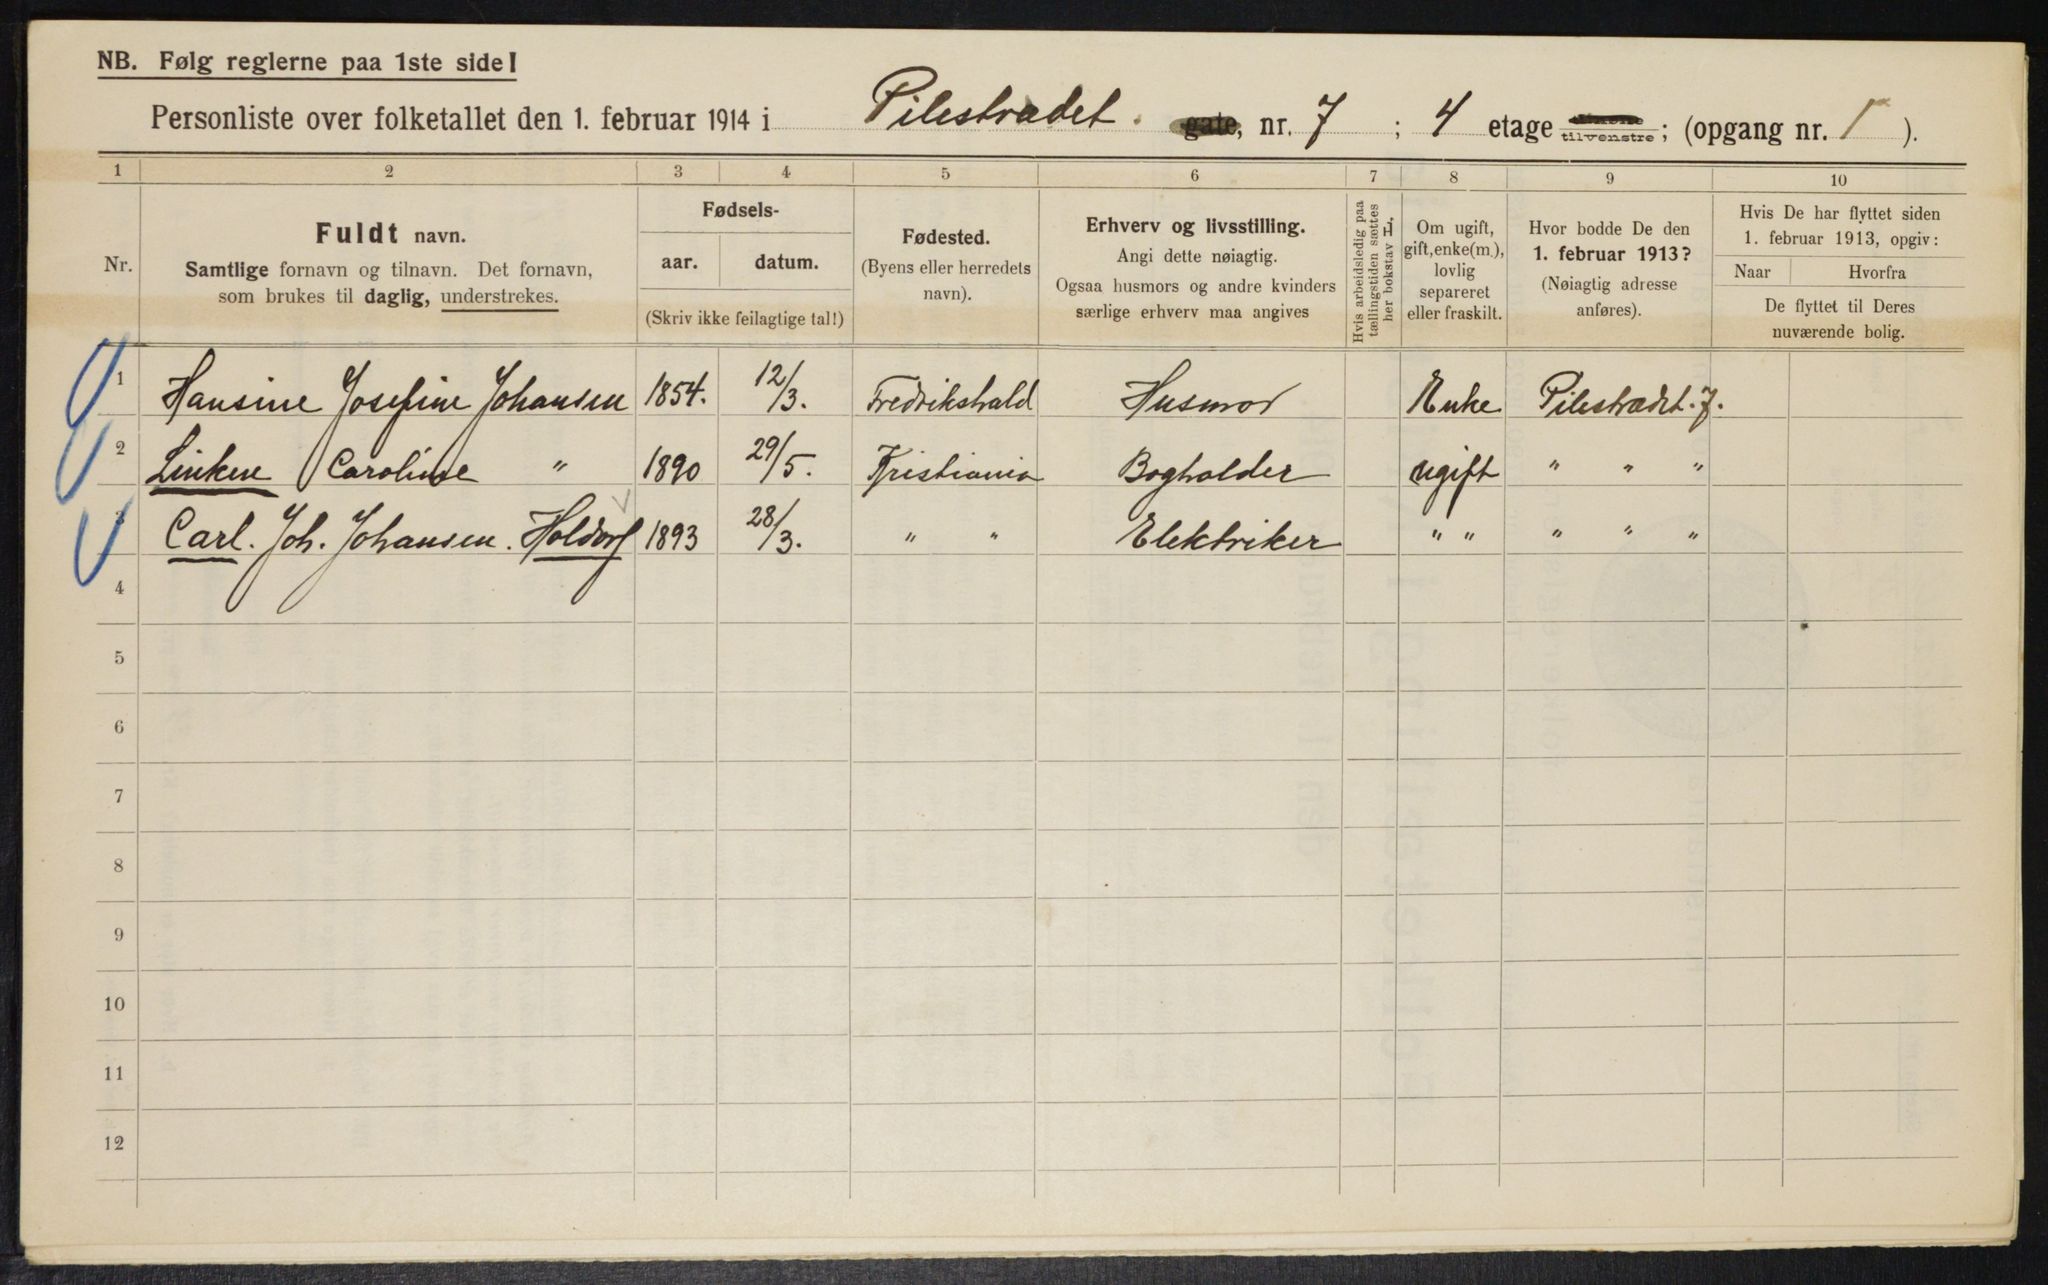 NB. Følg reglerne paa 1ste side!
Personliste over folketallet den 1. februar 1914 i Pilestrædet. gate, nr. 7 ; 4 etage tilvenstre; (opgang nr. 1 ).
1 2 3 4 5 6 7 8 9 10
Nr.
Fuldt navn.
Samtlige fornavn og tilnavn. Det fornavn,
som brukes til daglig, understrekes.
Fødsels-
aar. datum.
(Skriv ikke feilagtige tal!)
Fødested.
(Byens eller herredets
navn).
Erhverv og livsstilling.
Angi dette nøiagtig.
Ogsaa husmors og andre kvinders
særlige erhverv maa angives
Hvis arbeidsledig paa
tællingstiden sættes
her bokstav L.
Om ugift,
gift, enke(m.),
lovlig
separeret
eller fraskilt.
Hvor bodde De den
1. februar 1913?
(Nøiagtig adresse
anføres).
Hvis De har flyttet siden
1. februar 1913, opgiv:
Naar Hvorfra
De flyttet til Deres
nuværende bolig.
1 Hansine Josefine Johansen 1854. 12/3. Fredrikshald Husmor Enke Pilestrædet. 7.
2 Linken Caroline " 1890 29/5. Kristiania Bogholder ugift " " "
3 Carl. Joh. Johansen. Holdorf 1893 28/3. " " Elektriker " " " " "
4
5
6
7
8
9
10
11
12